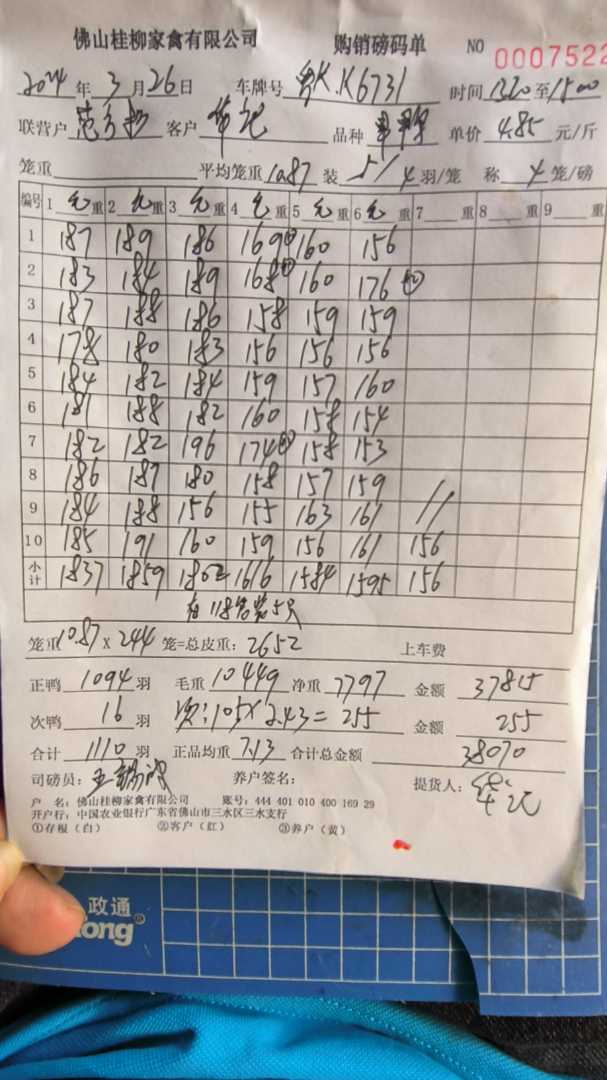 佛山桂柳家禽有限公司 购销磅码单 NO 0007522
2024年3月26日 车牌号 粤K.K6731 时间1320至1500
联营户 客户 华记 品种 单价 4.85 元/斤
笼重 平均笼重 10.87 装 5/4 羽/笼 称 4 笼/磅
编号 1 元重 2 元重 3 元重 4 元重 5 元重 6 元重 7 重 8 重 9 重
1 187 189 186 169 160 156
2 183 184 189 168 160 176
3 187 188 186 158 159 159
4 178 180 183 156 156 156
5 184 182 184 159 157 160
6 181 188 182 160 158 154
7 182 182 196 174 158 153
8 186 187 180 158 157 159
9 184 188 156 155 163 161 //
10 185 191 160 159 156 161 156
小计 1837 1859 1802 1616 1584 1595 156
有118笼装5只
笼重10.87 x 244 笼=总皮重:2652 上车费
正鸭 1094 羽 毛重 10449 净重 7797 金额 37815
次鸭 16 羽 次:105x2.43=255 金额 255
合计 1110 羽 正品均重 7.13 合计总金额 38070
司磅员: 养户签名: 提货人:
户 名: 佛山桂柳家禽有限公司 账号: 444 401 010 400 169 29
开户行: 中国农业银行广东省佛山市三水区三水支行
①存根(白) ②客户(红) ③养户(黄)
政通
ong®